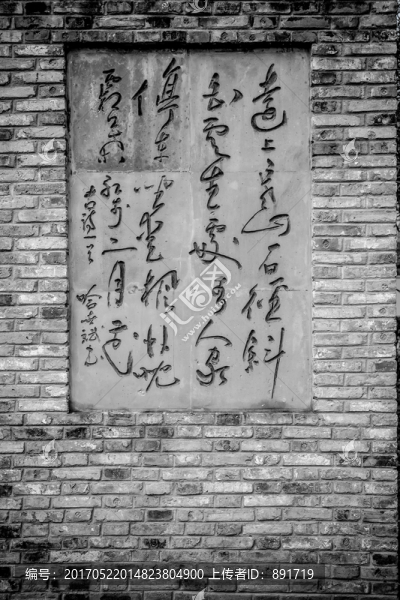 遠上寒山石徑斜
白雲生處有人家
停車坐愛楓林晚
霜葉紅於二月花
古詩一首
编号：20170522014823804900 上传者ID：891719